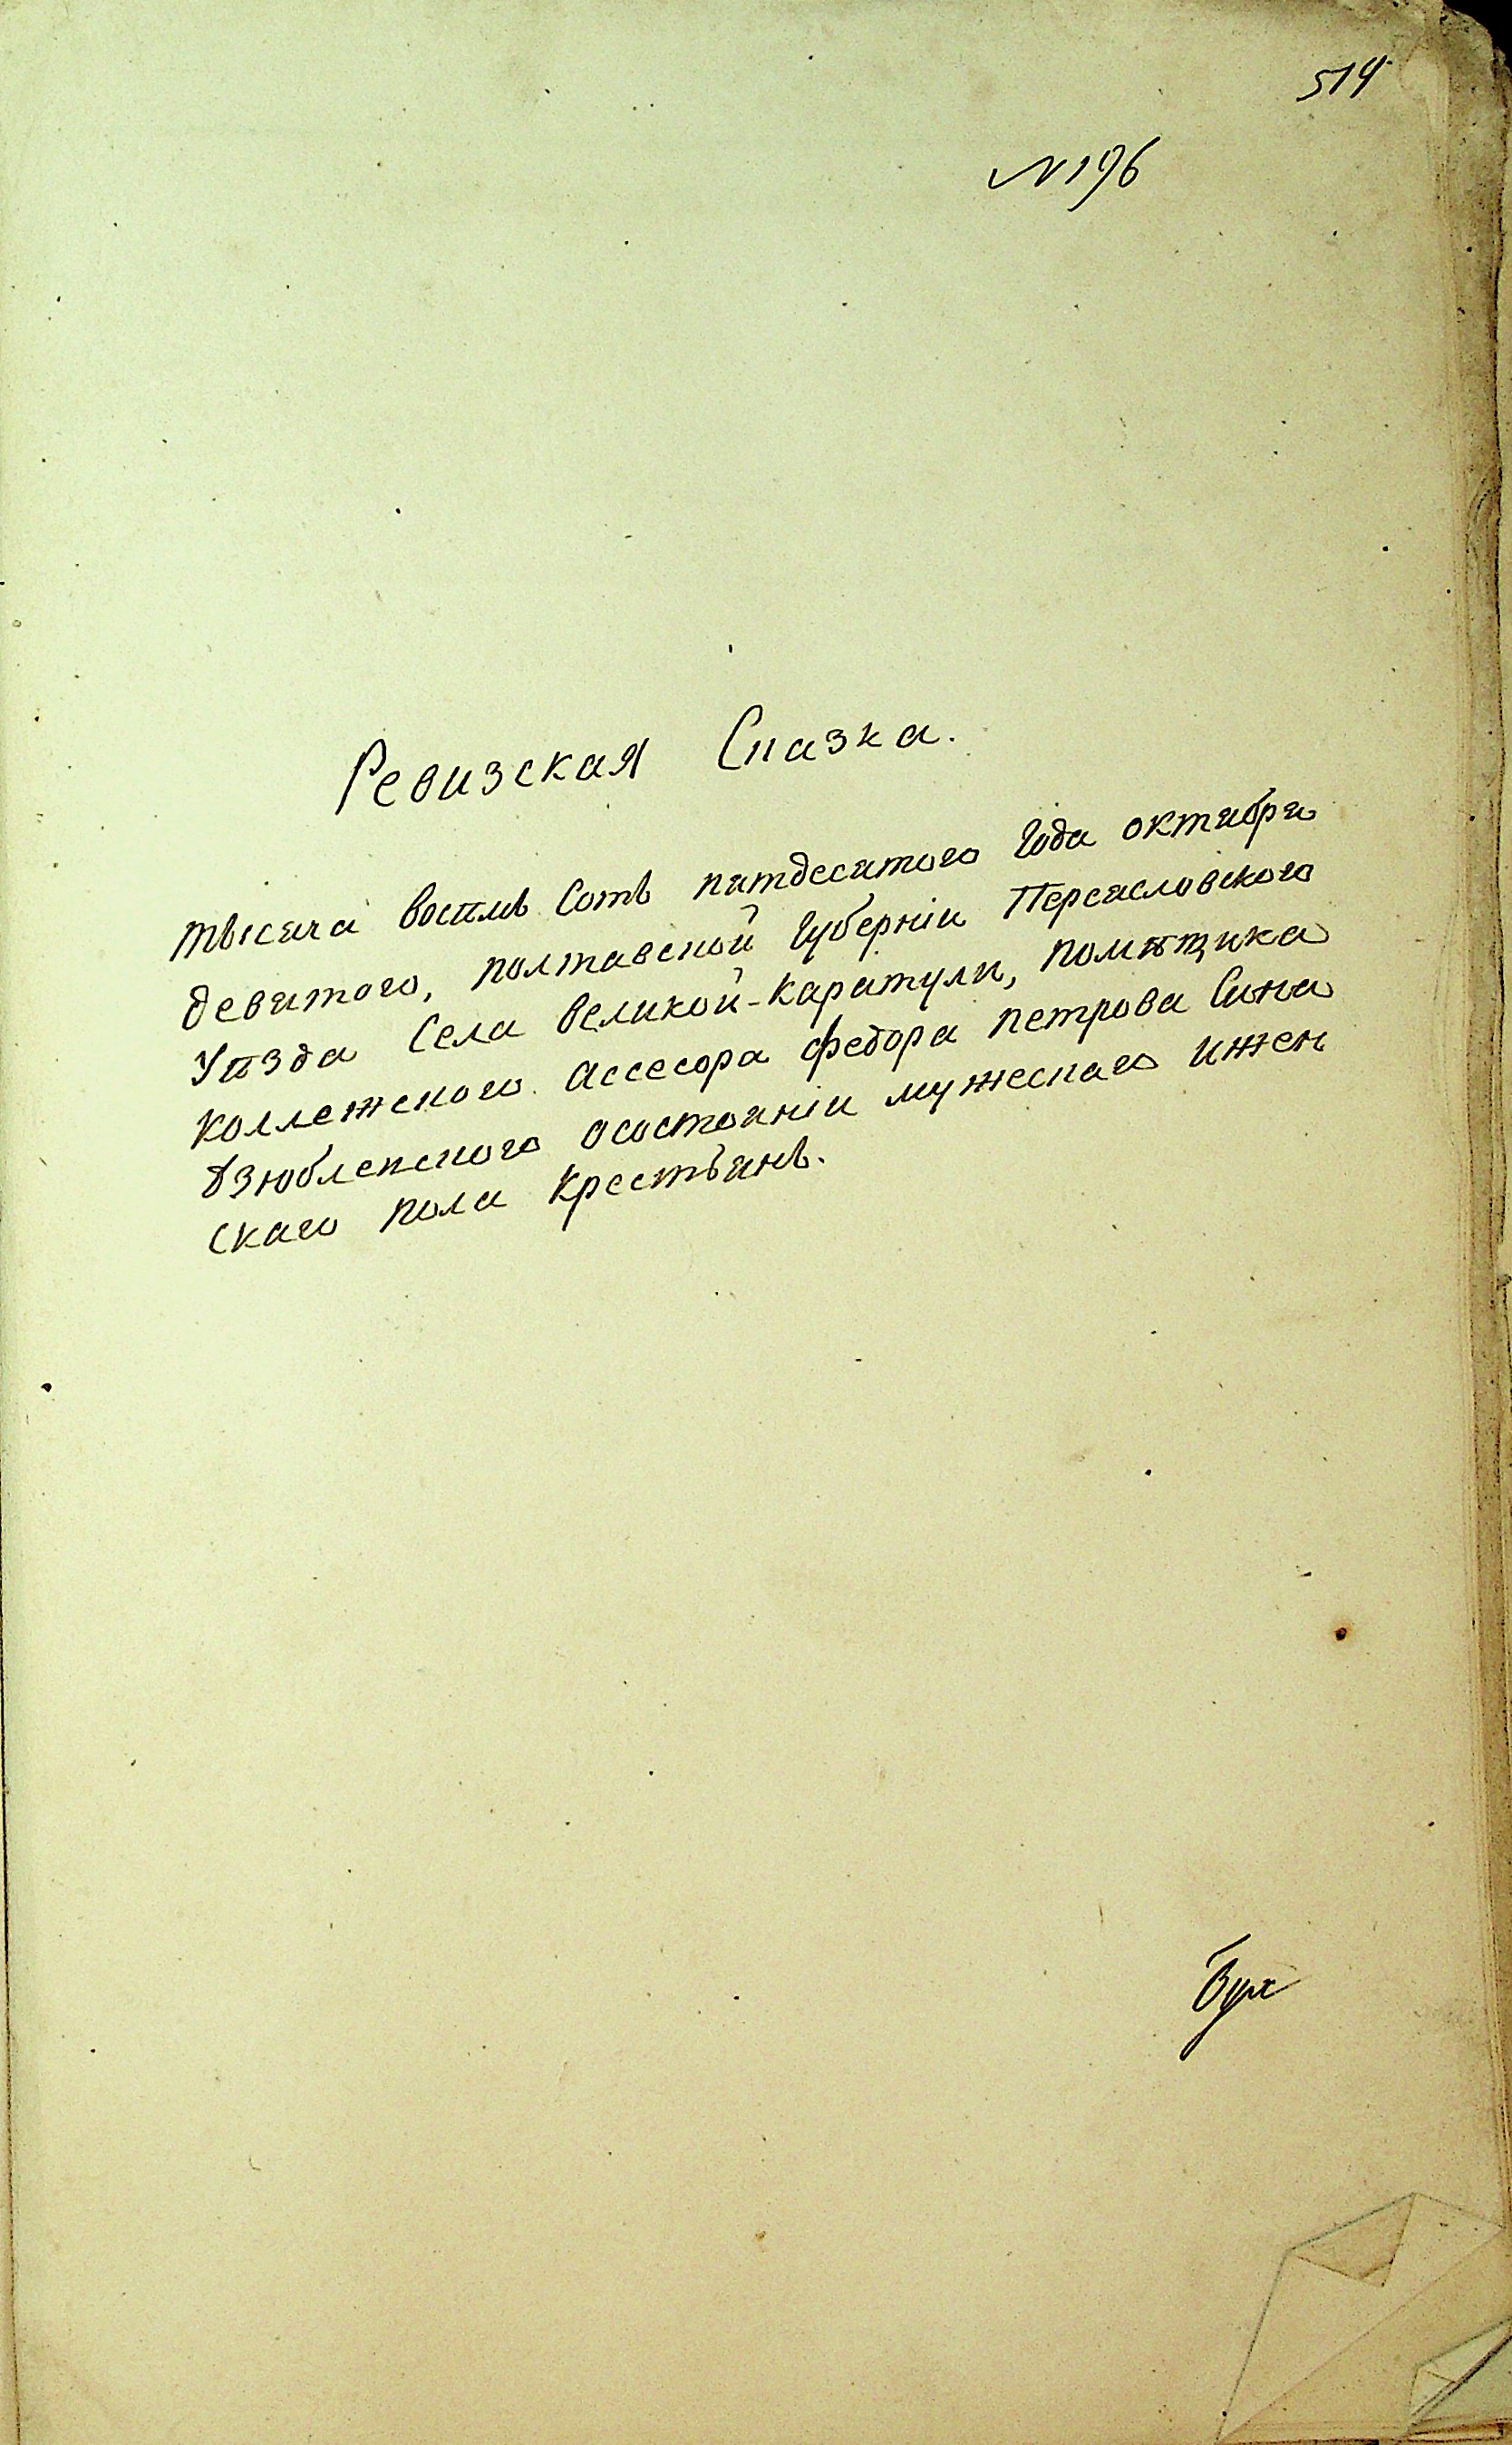 514
№ 196
Ревизская Сказка.
тысяча восемь Сотъ пятдесятого Года октября
девятого, полтавской Губерніи Переясловского
Уѣзда Села великой-каратули, помѣщика
коллежского ассесора федора петрова Сина
дзюблевского осостояніи мужескаго ижен
скаго пола крестьянъ.